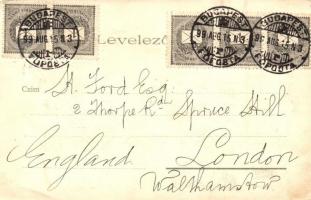 BUDAPEST
99 AUG. 15 N 3
FŐPOSTA
BUDAPEST
99 AUG. 15 N 3
FŐPOSTA
BUDAPEST
99 AUG. 15 N 3
FŐPOSTA
Levelező
Czim
H. Ford Esq:
2 Thorpe Rd Spruce Hill
England London
Walthamstow